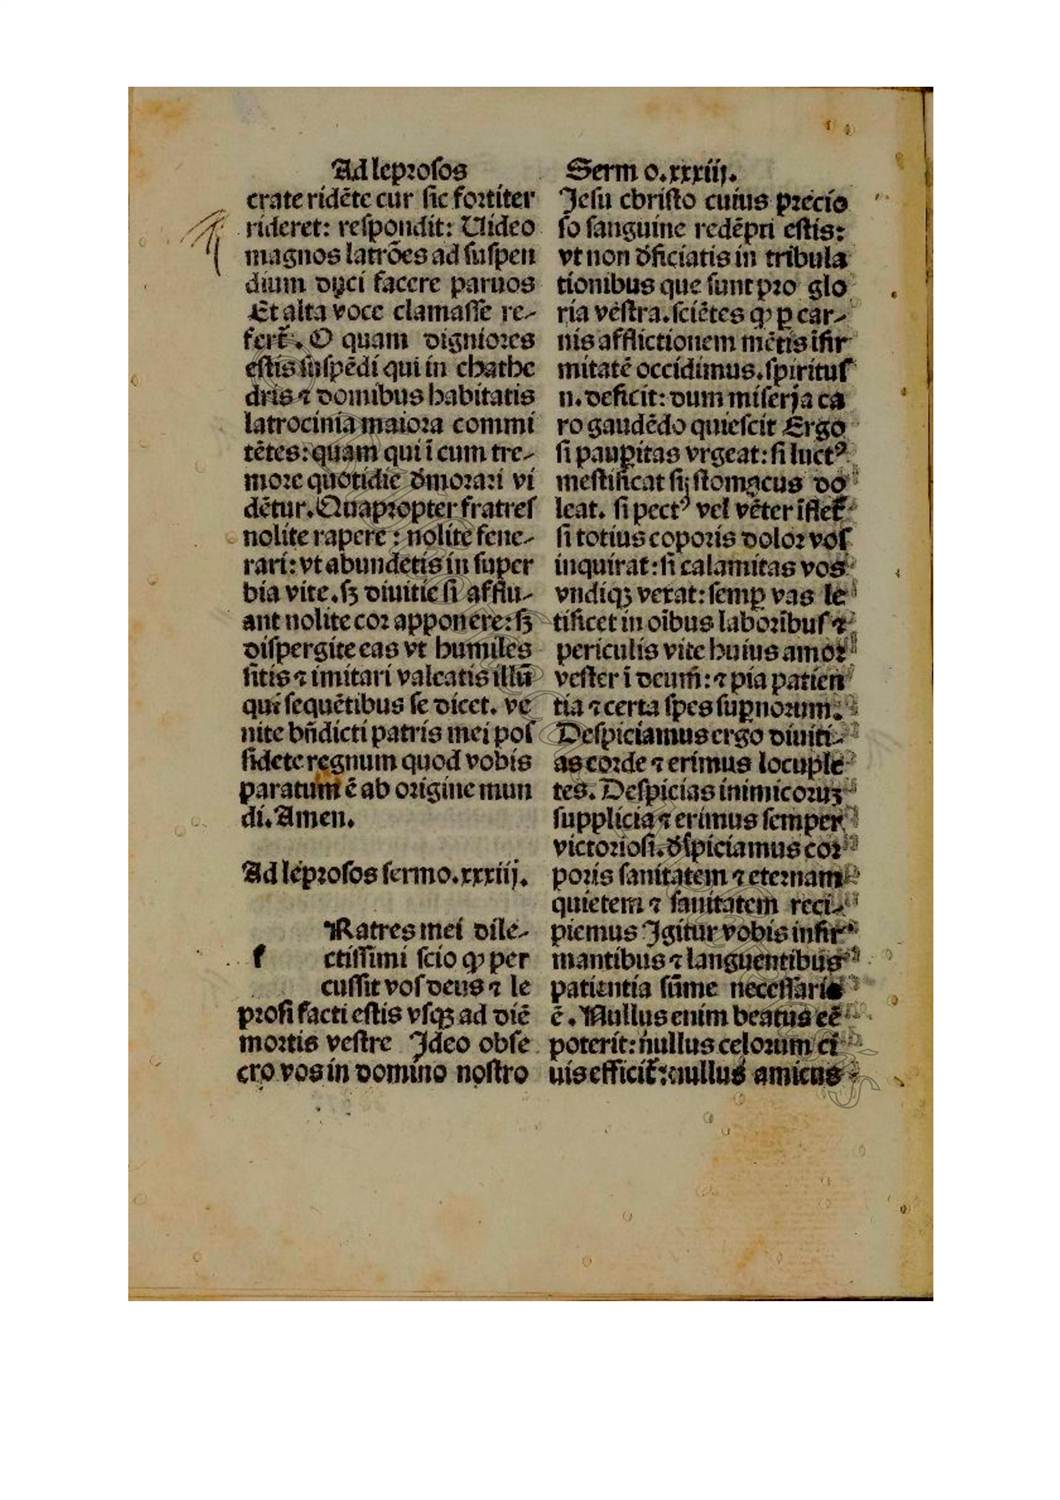 Ad leprosos
crate ridēte cur sic fortiter
rideret: respondit: Uideo
magnos latrōes ad suspen
dium duci facere paruos
Et alta voce clamasse re-
fert̄. O quam digniores
estis suspēdi qui in chathe
dris ⁊ domibus habitatis
latrocinia maiora commi
tētes: quam qui ī cum tre-
more quotidie d̄morari vi
dētur. Quapropter fratres
nolite rapere: nolite fene-
rari: vt abundetis in super
bia vite. sꝫ diuitie si afflu-
ant nolite cor apponere: sꝫ
dispergite eas vt humiles
sitis ⁊ imitari valeatis illū
qui sequētibus se dicet. ve
nite bn̄dicti patris mei pos
sidete regnum quod vobis
paratum ē ab origine mun
di. Amen.
Ad leprosos sermo. xxxiij.
f Ratres mei dile-
ctissimi scio ꝙ per
cussit vos deus ⁊ le
prosi facti estis vsqꝫ ad diē
mortis vestre Ideo obse
cro vos in domino nostro
Serm o. xxxiij.
Jesu christo cuius precio
so sanguine redēpti estis:
vt non d̄ficiatis in tribula
tionibus que sunt pro glo
ria vestra. sciētes ꝙ ꝑ car-
nis afflictionem mētis īfir
mitatē occidimus. spiritus
n. deficit: dum miseria ca
ro gaudēdo quiescit Ergo
si pauꝑitas vrgeat: si luctꝰ
mestificat si stomacus do
leat. si pectꝰ vel vēter īflet̄
si totius coporis dolor vos
inquirat: si calamitas vos
vndiqꝫ vexat: semꝑ vas le
tificet in oībus laborībus ⁊
periculis vite huius amor
vester ī deum̄: ⁊ pia patien
tia ⁊ certa spes suꝑnorum.
Despiciamus ergo diuiti-
as corde ⁊ erimus locuple
tes. Despicias inimicoruꝫ
supplicia ⁊ erimus semper
victoriosi. d̄spiciamus cor
poris sanitatem ⁊ eternam
quietem ⁊ sanitatem reci-
piemus Igitur vobis infir
mantibus ⁊ languentibus
patientia sūme necessaria
ē. Nullus enim beatus eē
poterit: nullus celorum ci
uis efficit̄: nullus amicus